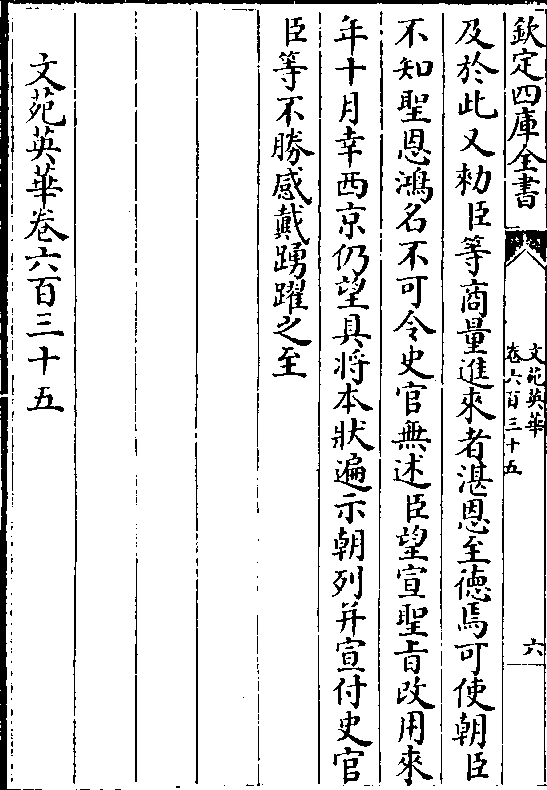 欽定四庫全書
文苑英華
卷六百三十五
六
及於此又勑臣等商量進來者湛恩至德焉可使朝臣
不知聖恩鴻名不可令史官無述臣望宣聖旨改用來
年十月幸西京仍望具將本狀遍示朝列并宣付史官
臣等不勝感戴踴躍之至
文苑英華卷六百三十五